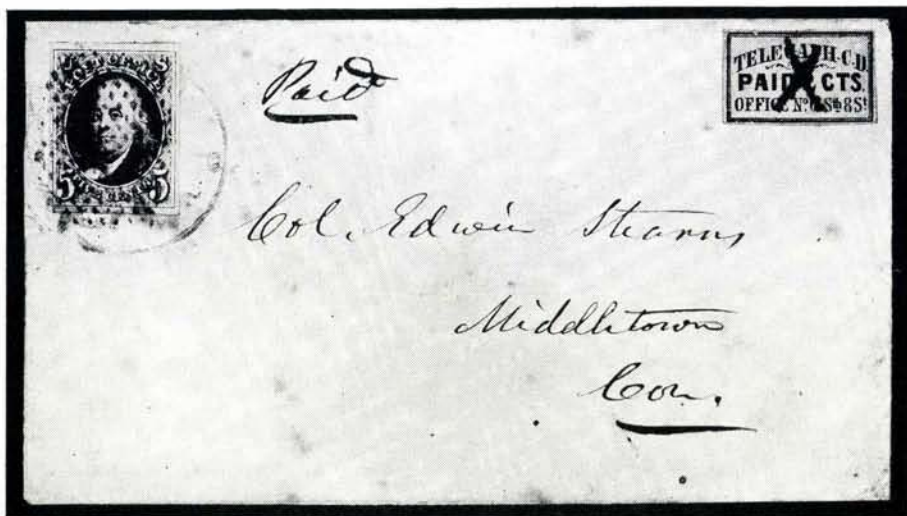 5 5
Paid
TELEGRAPH·C·D
PAID CTS.
OFFICE Nº
Col. Edwin Stearns
Middletown
Con.